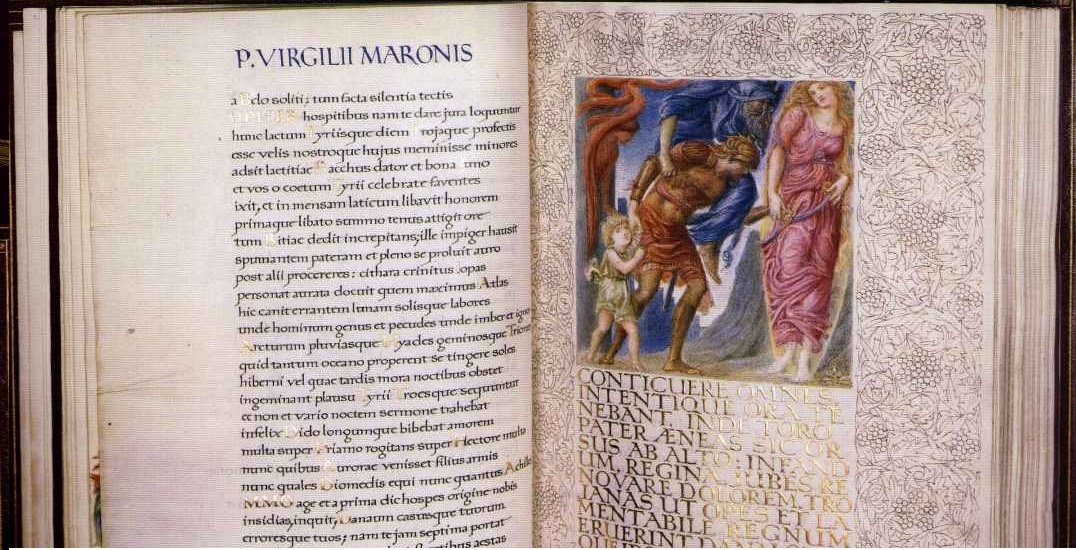 P. VIRGILII MARONIS
a Belo soliti; tum facta silentia tectis
JUPITER hospitibus nam te dare jura loquuntur
hunc laetum Tyriisque diem Trojaque profectis
esse velis nostroque hujus meminisse minores
adsit laetitiae Bacchus dator et bona Juno
et vos o coetum Tyrii celebrate faventes
ixit, et in mensam laticum libavit honorem
primaque libato summo tenus attigit ore
tum Bitiae dedit increpitans; ille impiger hausit
spumantem pateram et pleno se proluit auro
post alii procereres: cithara crinitus Iopas
personat aurata docuit quem maximus Atlas
hic canit errantem lunam solisque labores
unde hominum genus et pecudes unde imber et ignes
Arcturum pluviasque Hyades geminosque Triones
quid tantum oceano properent se tingere soles
hiberni vel quae tardis mora noctibus obstet
ingeminant plausu Tyrii Troesque sequuntur
ec non et vario noctem sermone trahebat
infelix Dido longumque bibebat amorem
multa super Priamo rogitans super Hectore multa
nunc quibus Aurorae venisset filius armis
nunc quales Diomedis equi nunc quantus Achilles
IMMO age et a prima dic hospes origine nobis
insidias, inquit, Danaum casusque tuorum
erroresque tuos; nam te jam septima portat
aestas
CONTICUERE OMNES,
INTENTIQUE ORA TE
NEBANT. INDE TORO
PATER ÆNEAS SIC OR
SUS AB ALTO: INFAND
UM, REGINA, JUBES RE
NOVARE DOLOREM, TRO
JANAS UT OPES ET LA
MENTABILE REGNUM
ERUERINT DANAI